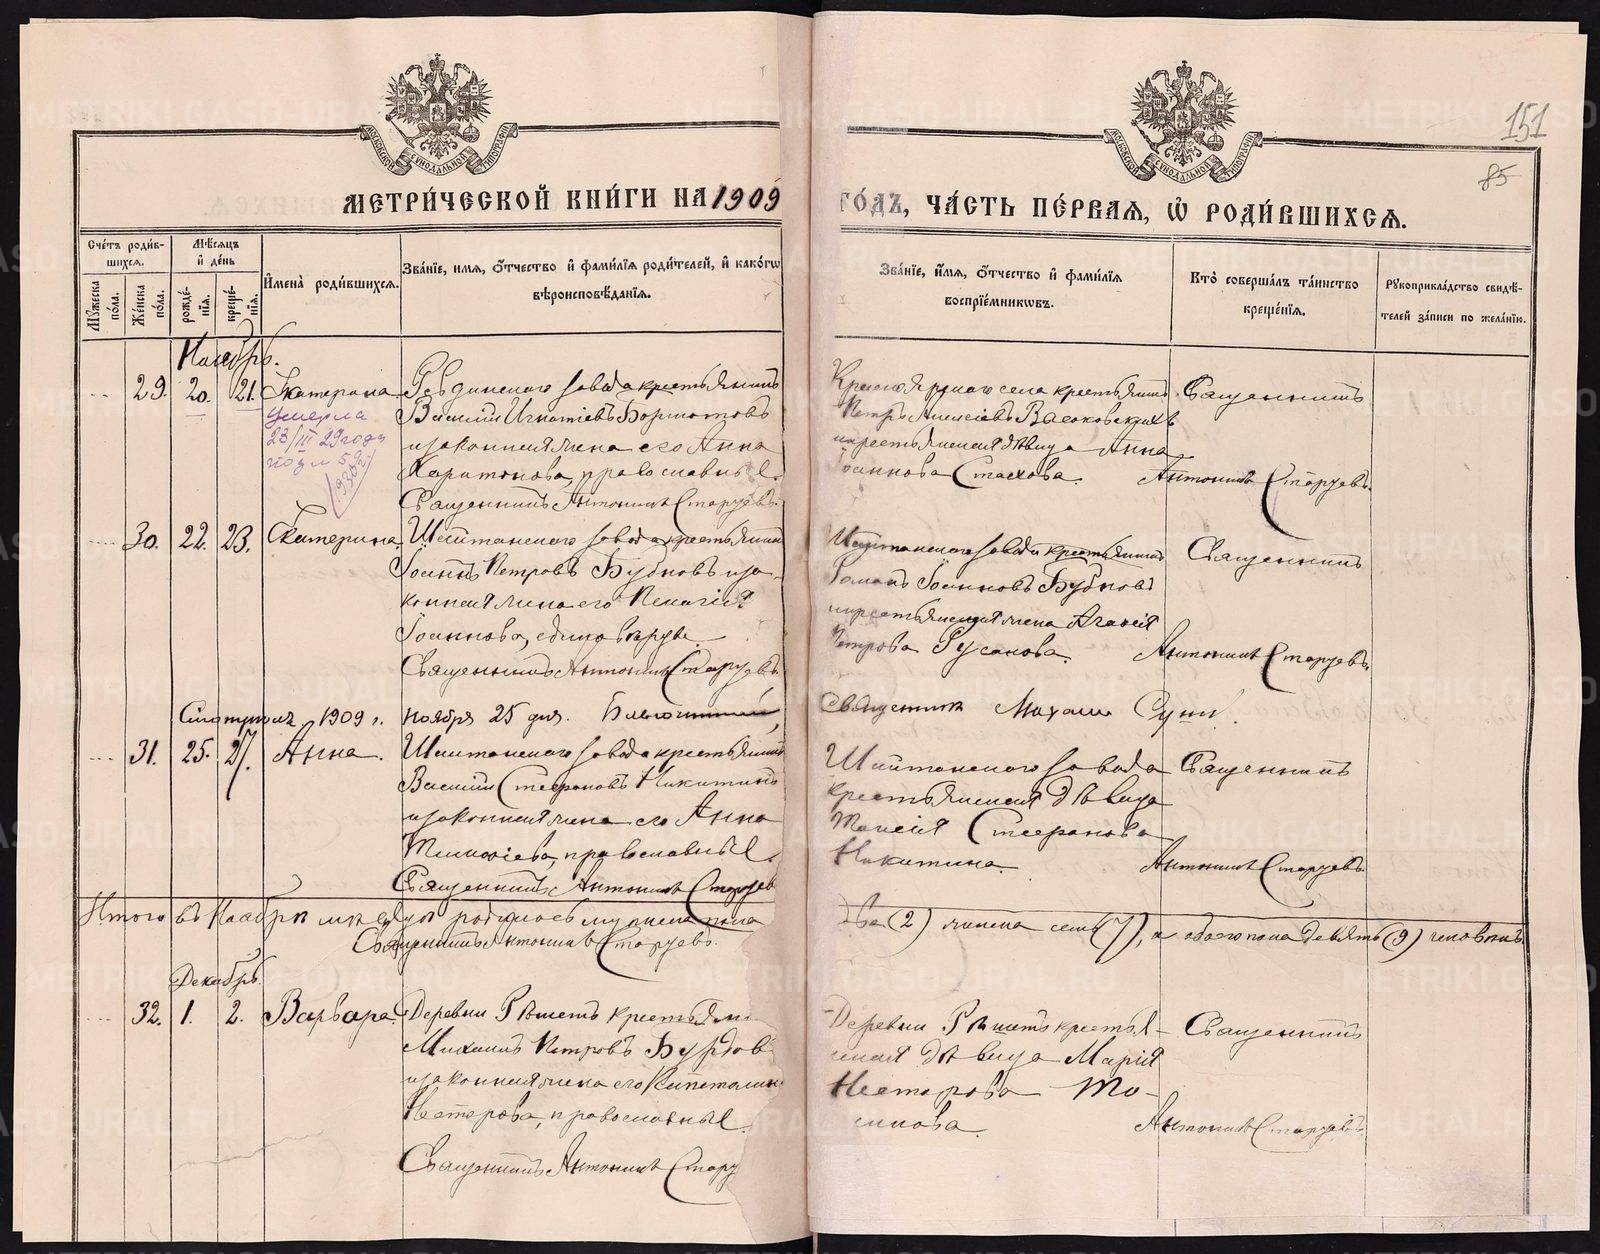 151
85
МОСКОВСКОЙ СѴНОДАЛЬНОЙ ТИПОГРАФІИ
МОСКОВСКОЙ СѴНОДАЛЬНОЙ ТИПОГРАФІИ
МЕТРИ́ЧЕСКОЙ КНИ́ГИ НА 1909
ГО́ДЪ, ЧА́СТЬ ПЕ́РВАЯ, Ѡ҆ РОДИ́ВШИХСЯ.
Сче́тъ роди́в-
шихся.
Мꙋ́жеска по́ла.
Же́нска по́ла.
Мѣ́сяцъ
и҆ де́нь
рожде́-
нїя.
креще́-
нїя.
И҆мена̀ роди́вшихся.
Зва́нїе, имя, ѻ҆́тчество и҆ фами́лїя роди́телей, и҆ како́гѡ
вѣроисповѣ́данїя.
Зва́нїе, и҆́мя, ѻ҆́тчество и҆ фами́лїя
воспрїе́мникѡвъ.
Кто̀ соверша́лъ та́инство
креще́нїя.
Рꙋкоприкла́дство свидѣ́-
телей за́писи по жела́нїю.
Ноябрь.
29. 20. 21. Екатерина
умерла
23/III 29 года
Ревдинскаго завода крестьянинъ
Василій Игнатіевъ Бормотовъ
и законная жена его Анна
Харитонова, православные.
Священникъ Антоній Старцевъ
Красноярскаго села крестьянинъ
Петръ Алексіевъ Высоковскихъ
и крестьянская дѣвица Анна
Іоаннова Стахова.
Священникъ
Антоній Старцевъ.
30. 22. 23. Екатерина.
Шайтанскаго завода крестьянинъ
Іоаннъ Петровъ Бубновъ и за-
конная жена его Пелагія
Іоаннова, единовѣрцы
Священникъ Антоній Старцевъ
Шайтанскаго завода крестьянинъ
Романъ Іоанновъ Бубновъ
и крестьянская жена Агафія
Петрова Русакова.
Священникъ
Антоній Старцевъ.
1909 г. ноября 25 дня.
Священникъ Михаилъ
31. 25. 27. Анна.
Шайтанскаго завода крестьянинъ
Василій Стефановъ Никитинъ
и законная жена его Анна
Тимофіева, православные.
Священникъ Антоній Старцевъ
Шайтанскаго завода
крестьянская дѣвица
Таисія Стефанова
Никитина.
Священникъ
Антоній Старцевъ.
Итого въ Ноябрѣ мѣсяцѣ родилось мужеска пола
два (2) женска семь (7), а обоего пола девять (9) человѣкъ.
Священникъ Антоній Старцевъ.
Декабрь
32. 1. 2. Варвара.
Деревни Рѣшетъ крестьянин
Михаилъ Петровъ Бурдов
и законная жена его Капетолин
Нестерова, православные.
Священникъ Антоній Старц
Деревни Рѣшетъ крестья-
нская дѣвица Марія
Несторова То-
Священникъ
Антоній Старцевъ.